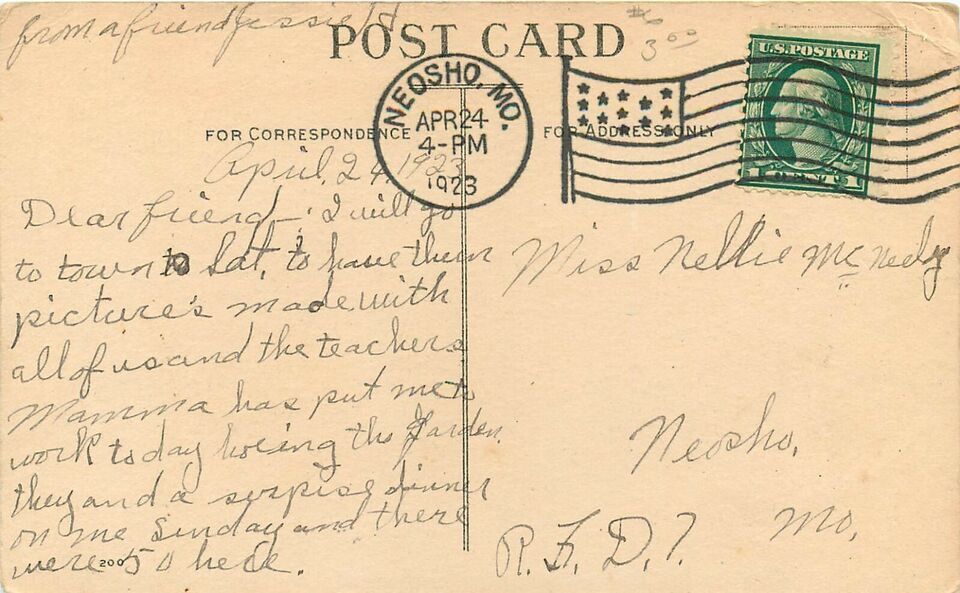 from a friend Jessie
#6
3 00
POST CARD
U.S. POSTAGE
NEOSHO, MO.
APR 24
4-PM
1923
FOR CORRESPONDENCE
FOR ADDRESS ONLY
April, 24, 1923
Dear friend - I will go
to town to Sat, to have them
pictures made with
all of us and the teachers
Mamma has put me to
work today hoeing the garden,
they and a serpise dinner
on me Sunday and there
were 50 here.
2005
Miss Nellie
Neosho,
Mo,
R. F. D. 7.